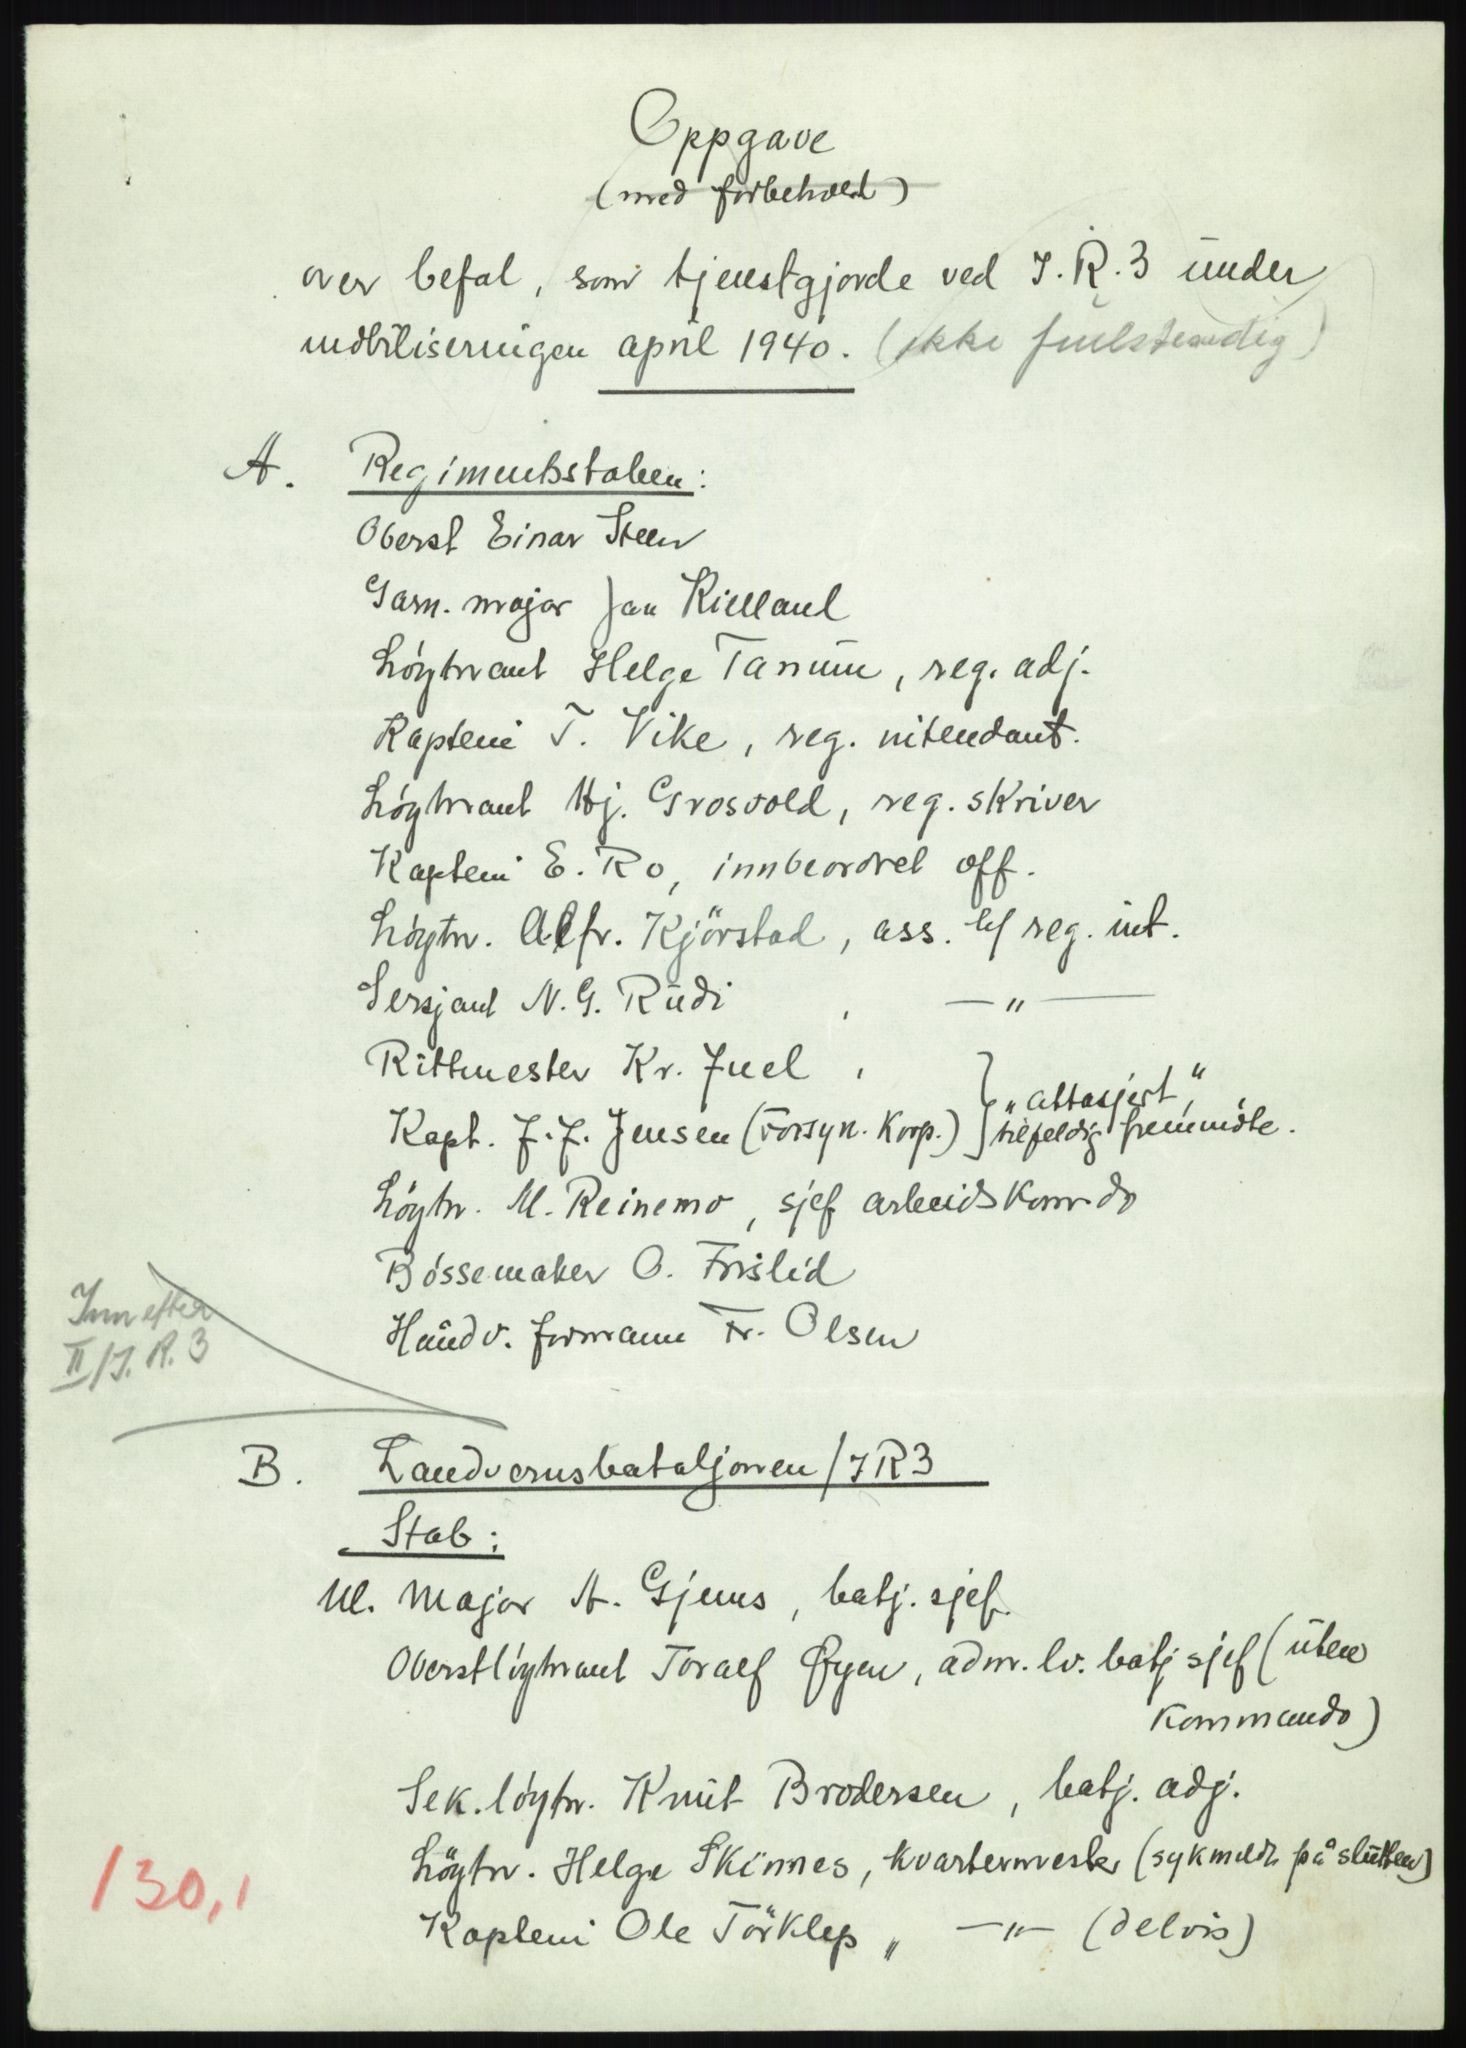 Oppgave
(med forbehold)
over befal, som tjenestgjorde ved I.R.3 under
mobiliseringen april 1940. (ikke fullstendig)
A. Regimentsstaben:
Oberst Einar Steen
Garn. major Jan Kielland
Löytnant Helge Tanum, reg. adj.
Kaptein T. Vike, reg. intendant.
Löytnant Hj. Grosvold, reg. skriver
Kaptein E. Ro, innbeordret off.
Löytn. Alfr. Kjörstad, ass. t/ reg. int.
Sersjant N. G. Rudi , —"—
Rittmester Kr. Juel , } "attasjert",
Kapt. J. J. Jensen (Forsyn. Korp.) } tilfeldig fremmöte.
Löytn. M. Reinemo, sjef arbeidskomdo
Bössemaker O. Frislid
Håndv. formann Fr. Olsen
Inn efter
II/I.R.3
B. Landvernsbataljonen/IR3
Stab:
Major A. Gjems, batj. sjef.
Oberstlöytnant Toralf Øyen, adm. lv. batj sjef (uten
Kommando)
Sek. löytn. Knut Brodersen, batj. adj.
Löytn. Helge Skinnes, kvartermester (sykmeldt på slutten)
130,1
Kaptein Ole Törklep „ —"— (delvis)